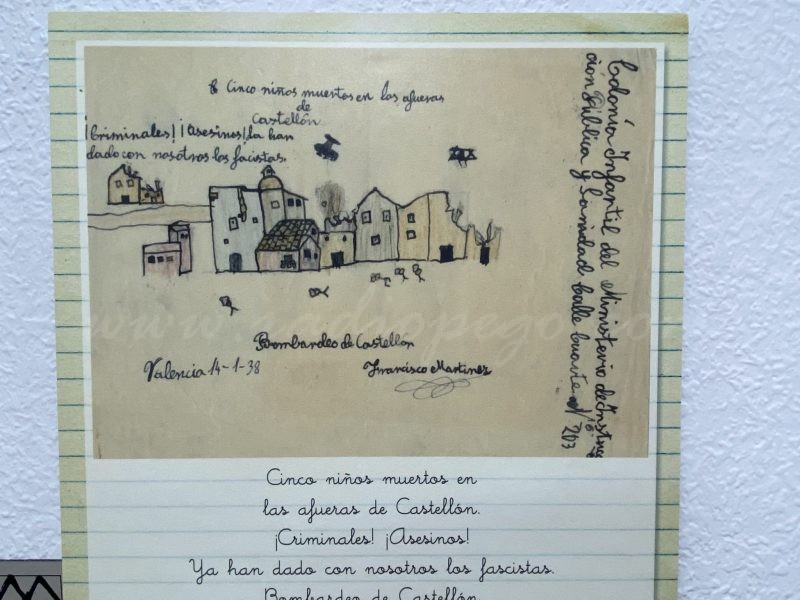 Cinco niños muertos en los afueras
de
Castellón
¡Criminales! ¡Asesinos! la han
dado con nosotros los facistas.
Bombardeo de Castellon
Valencia 14-1-38
Francisco Martinez
Colonia Infantil del Ministerio de Instruc
cion Pública y Sanidad Calle
Nº 203
Cinco niños muertos en
las afueras de Castellón.
¡Criminales! ¡Asesinos!
Ya han dado con nosotros los fascistas.
Bombardeo de Castellón